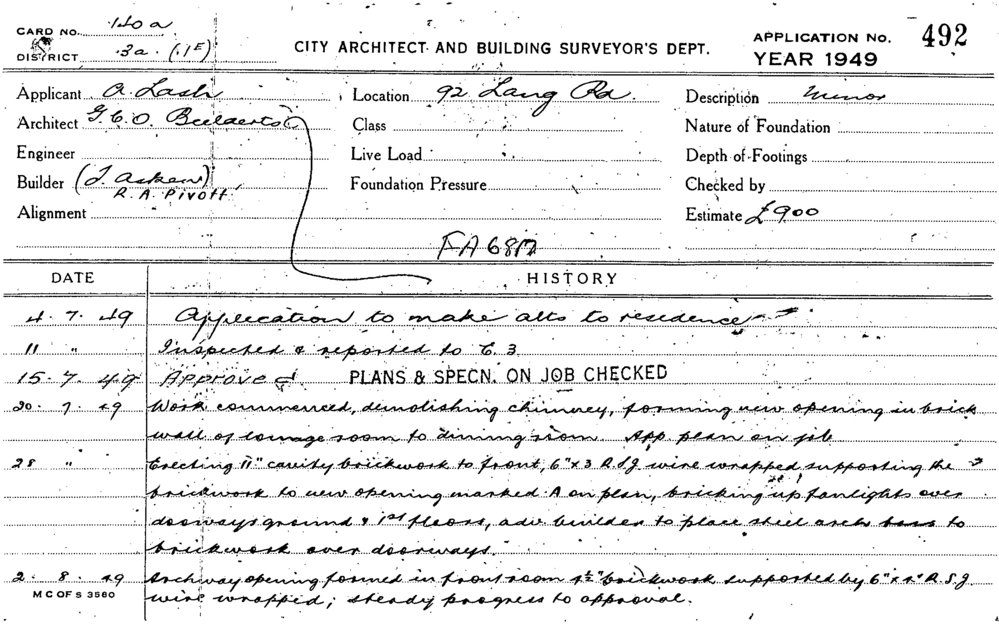 CARD NO. 140a
DISTRICT 3a. (1E)
CITY ARCHITECT AND BUILDING SURVEYOR'S DEPT.
APPLICATION NO. 492
YEAR 1949
Applicant A. Lash
Location 92 Lang Rd.
Description Minor
Architect G.C.O. Beilaerts
Class
Nature of Foundation
Engineer
Live Load
Depth of Footings
Builder (J. Askew)
R. A. Pivott
Foundation Pressure
Checked by
Alignment
Estimate £900
FA 6817
DATE
HISTORY
4. 7. 49 Application to make alts to residence
11 " Inspected & reported to C. 3.
15. 7. 49 Approved. PLANS & SPECN. ON JOB CHECKED
20. 7. 49 Work commenced, demolishing chimney, forming new opening in brick
wall of lounge room to dining room. App. plan on job
28 " Erecting 11" cavity brickwork to front, 6" x 3 R.S.J. wire wrapped supporting the
brickwork to new opening marked A on plan, bricking up fanlights over
doorways ground & 1st floors, adv. builder to place steel arch bars to
brickwork over doorways.
2. 8. 49 Archway opening formed in front room 4½" brickwork supported by 6" x 4" R.S.J.
M C OF S 3560
wire wrapped; steady progress to approval.